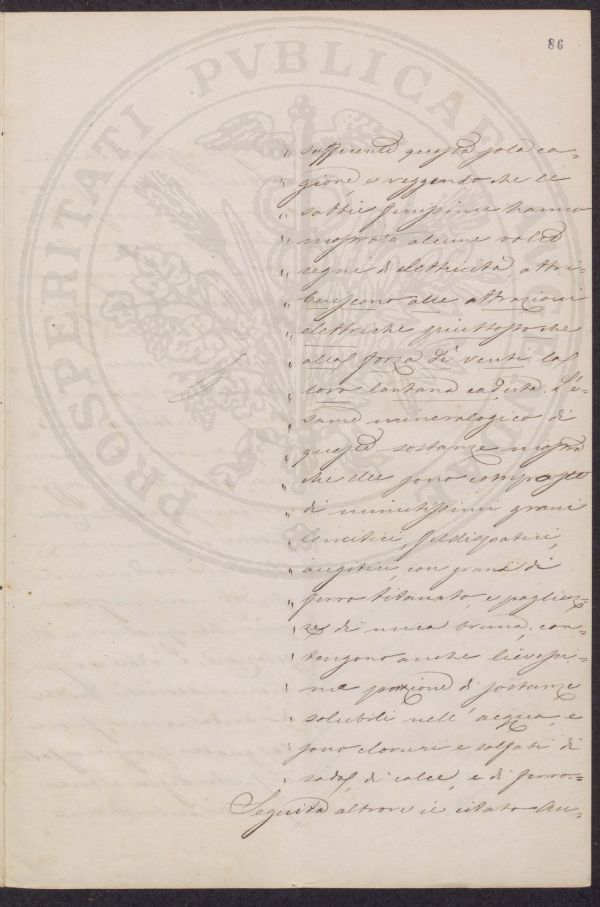 86
PROSPERITATI PVBLICAE
„ sufficiente questa sola ca=
„ gione, e veggendo che le
„ sabbie finissime hanno
„ mostrato alcune volte
„ segni di elettricità, attri=
„ buiscono alle attrazioni
„ elettriche piuttosto che
„ alla forza di venti la
„ loro lontana caduta. L'e=
„ same mineralogico di
„ queste sostanze mostra
„ che elle sono composte
„ di minutissimi grani
„ leucitici, feldispatici,
„ augitici, con grani di
„ ferro titanato, e pagliuz=
„ ze di mica bruna; con=
„ tengono anche lievissi=
„ ma porzione di sostanze
„ solubili nell'acqua, e
„ sono cloruri e solfati di
„ soda, di calce, e di ferro.=
Seguita altrove il citato Au=